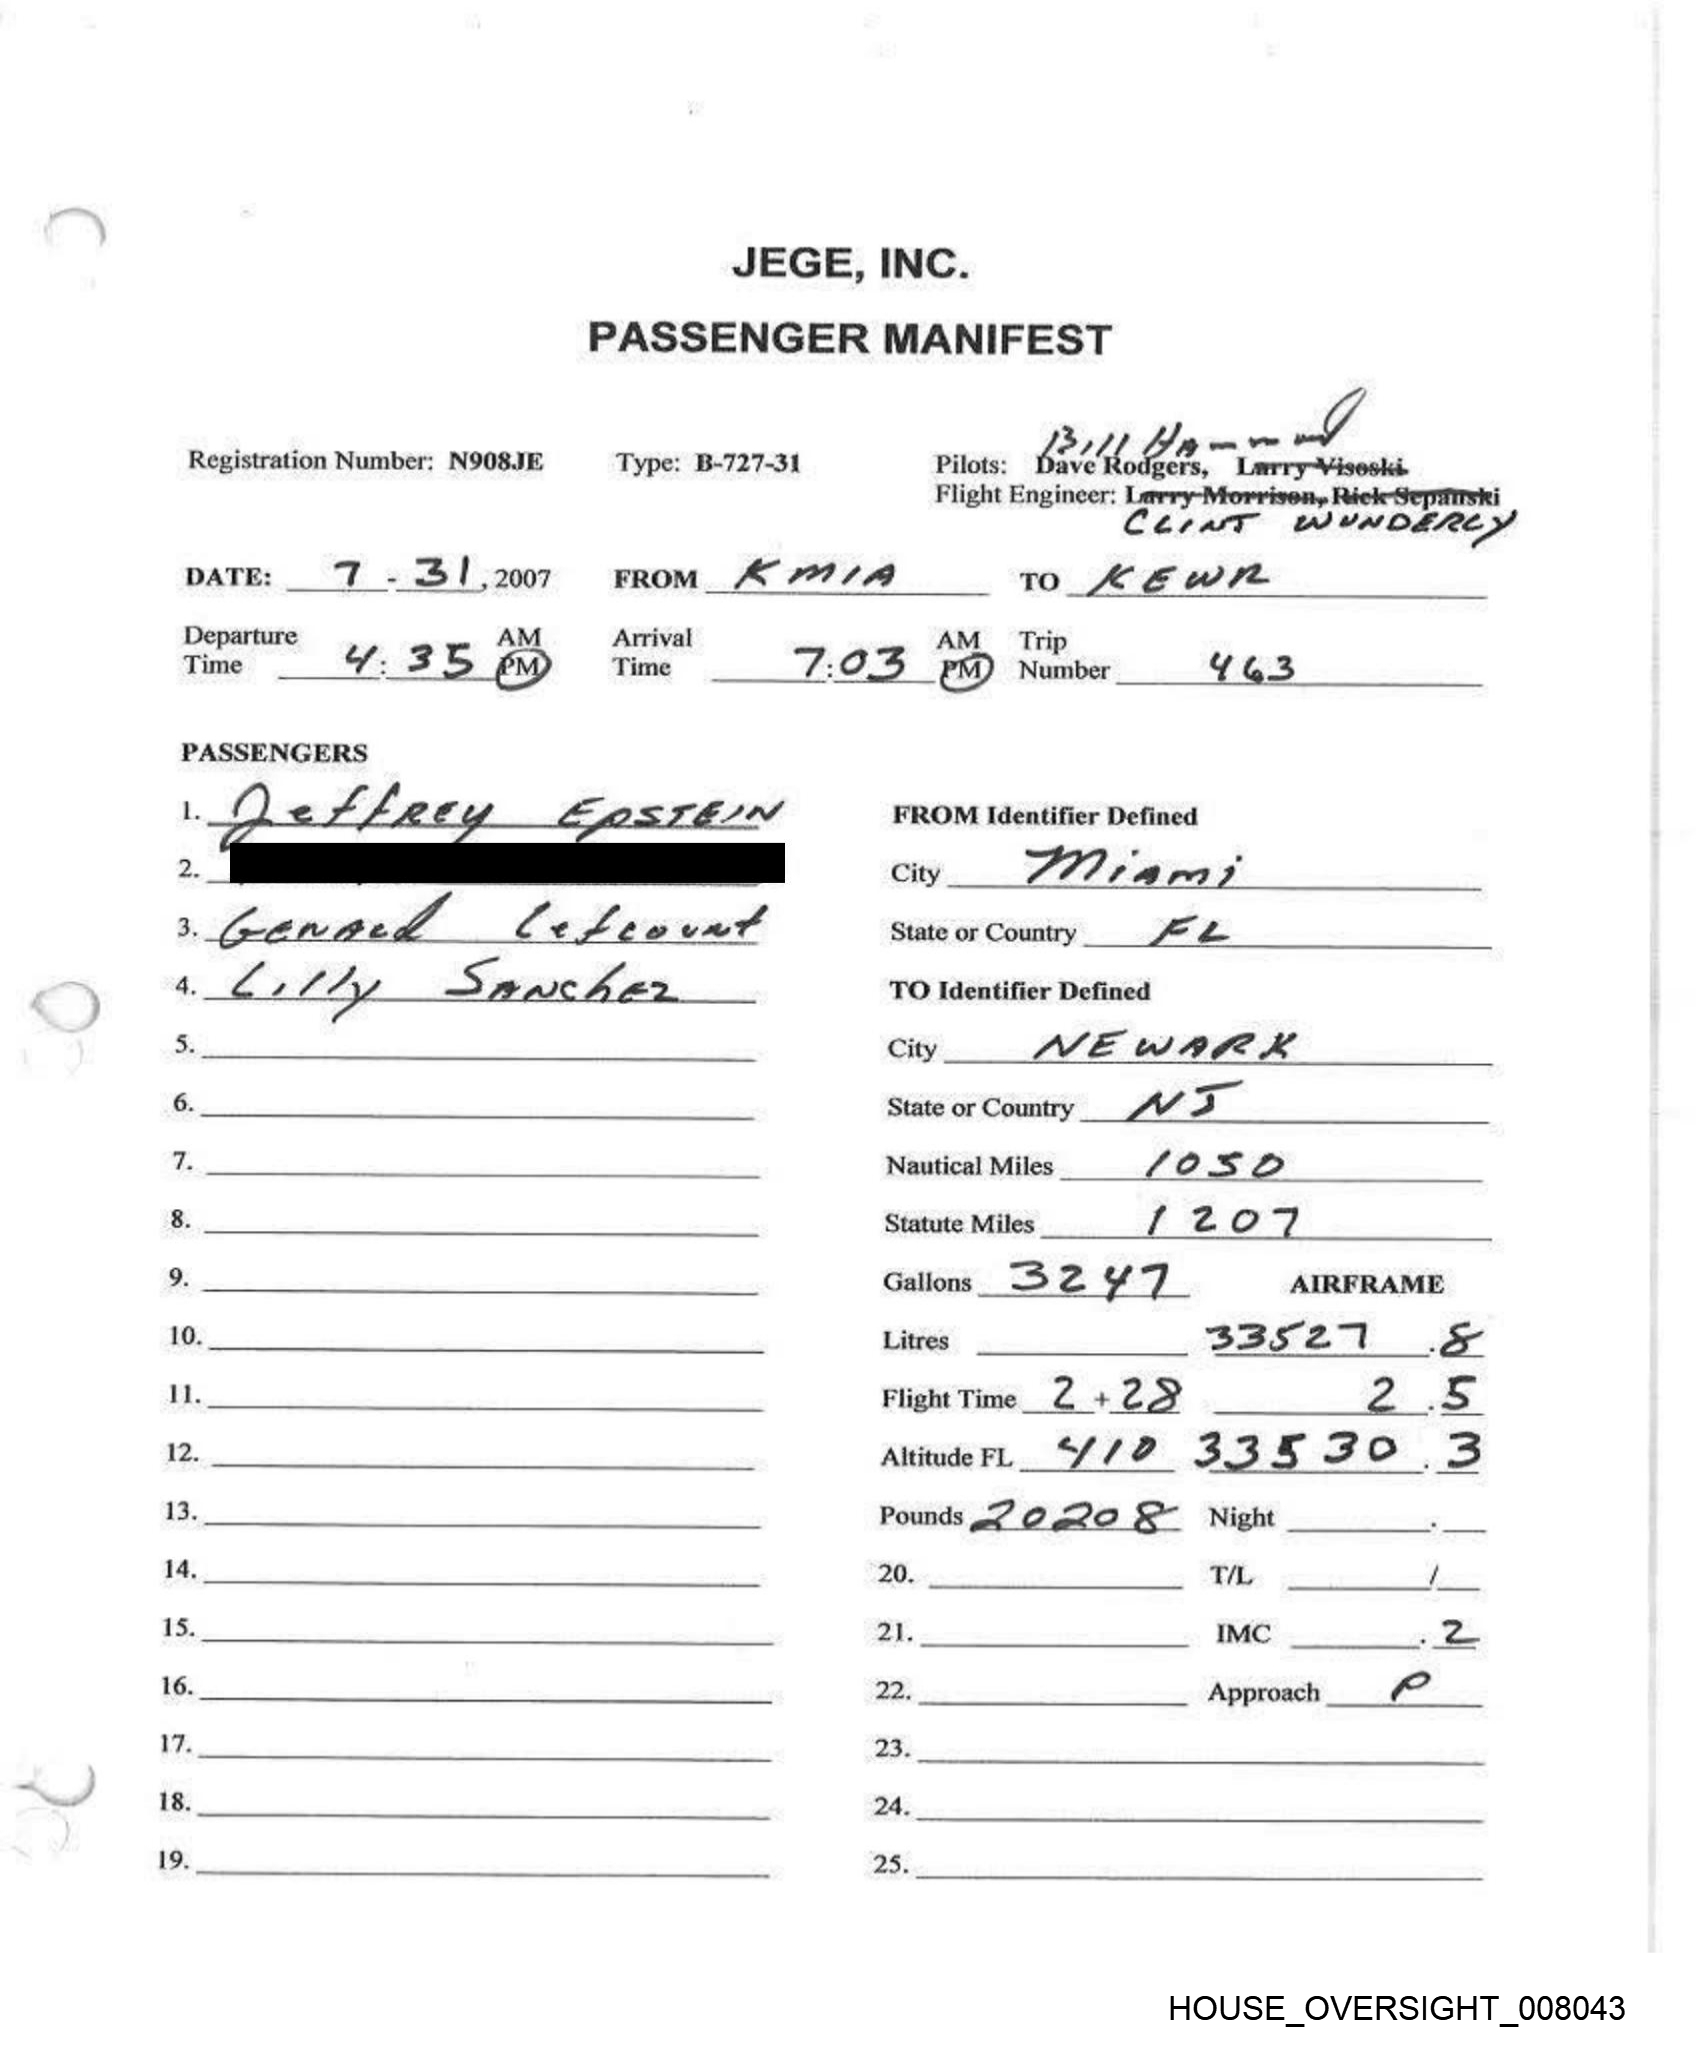 JEGE, INC.
PASSENGER MANIFEST
Bill Hammond
Registration Number: N908JE Type: B-727-31 Pilots: Dave Rodgers, Larry Visoski
Flight Engineer: Larry Morrison, Rick Sepanski
CLINT WUNDERLY
DATE: 7 - 31, 2007 FROM KMIA TO KEWR
Departure Time 4:35 AM PM Arrival Time 7:03 AM PM Trip Number 463
PASSENGERS
1. Jeffrey EPSTEIN
2.
3. GERALD Lefcourt
4. Lilly SANCHEZ
5.
6.
7.
8.
9.
10.
11.
12.
13.
14.
15.
16.
17.
18.
19.
FROM Identifier Defined
City Miami
State or Country FL
TO Identifier Defined
City NEWARK
State or Country NJ
Nautical Miles 1050
Statute Miles 1207
Gallons 3247 AIRFRAME
Litres 33527 .8
Flight Time 2 + 28 2 .5
Altitude FL 410 33530 .3
Pounds 20208 Night .
20. T/L /
21. IMC .2
22. Approach P
23.
24.
25.
HOUSE_OVERSIGHT_008043